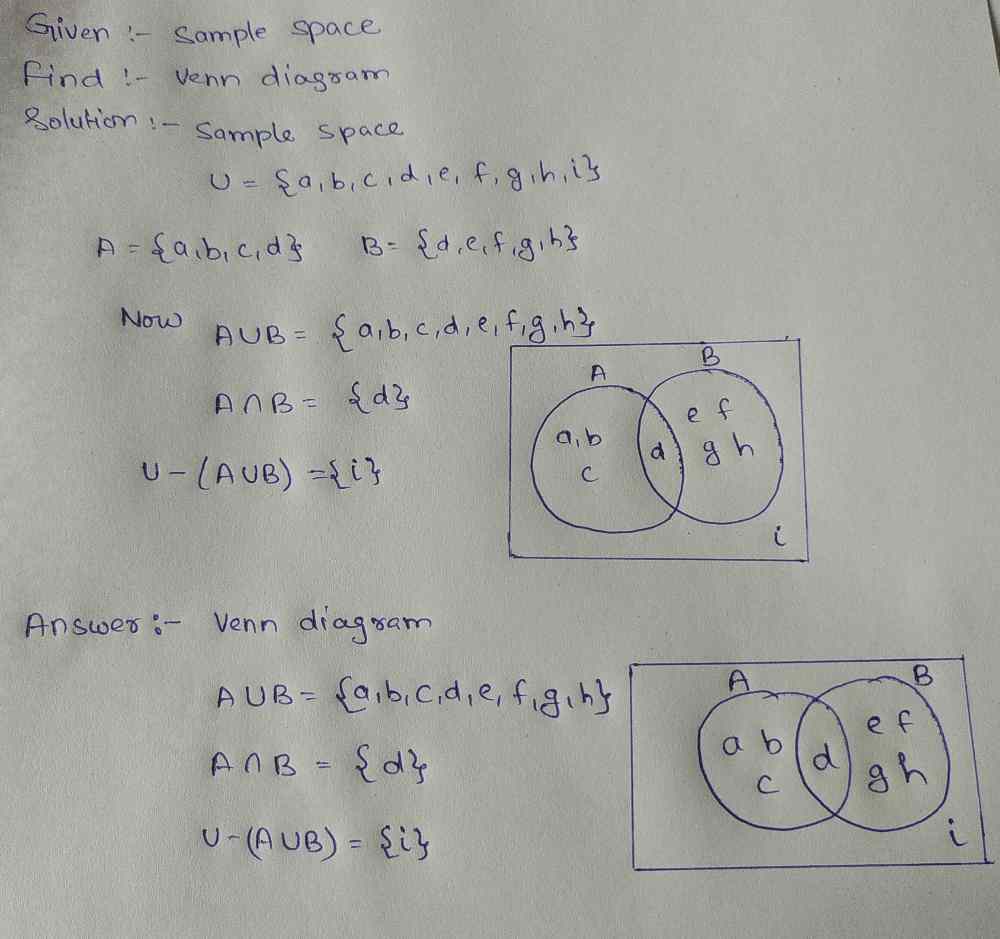 Given :- Sample space
Find :- Venn diagram
Solution :- Sample space
U = {a,b,c,d,e,f,g,h,i}
A = {a,b,c,d} B = {d,e,f,g,h}
Now A∪B = {a,b,c,d,e,f,g,h}
A∩B = {d}
U - (A∪B) = {i}
A B
a,b d e f
c g h
i
Answer :- Venn diagram
A∪B = {a,b,c,d,e,f,g,h}
A∩B = {d}
U-(A∪B) = {i}
A B
a b d e f
c g h
i